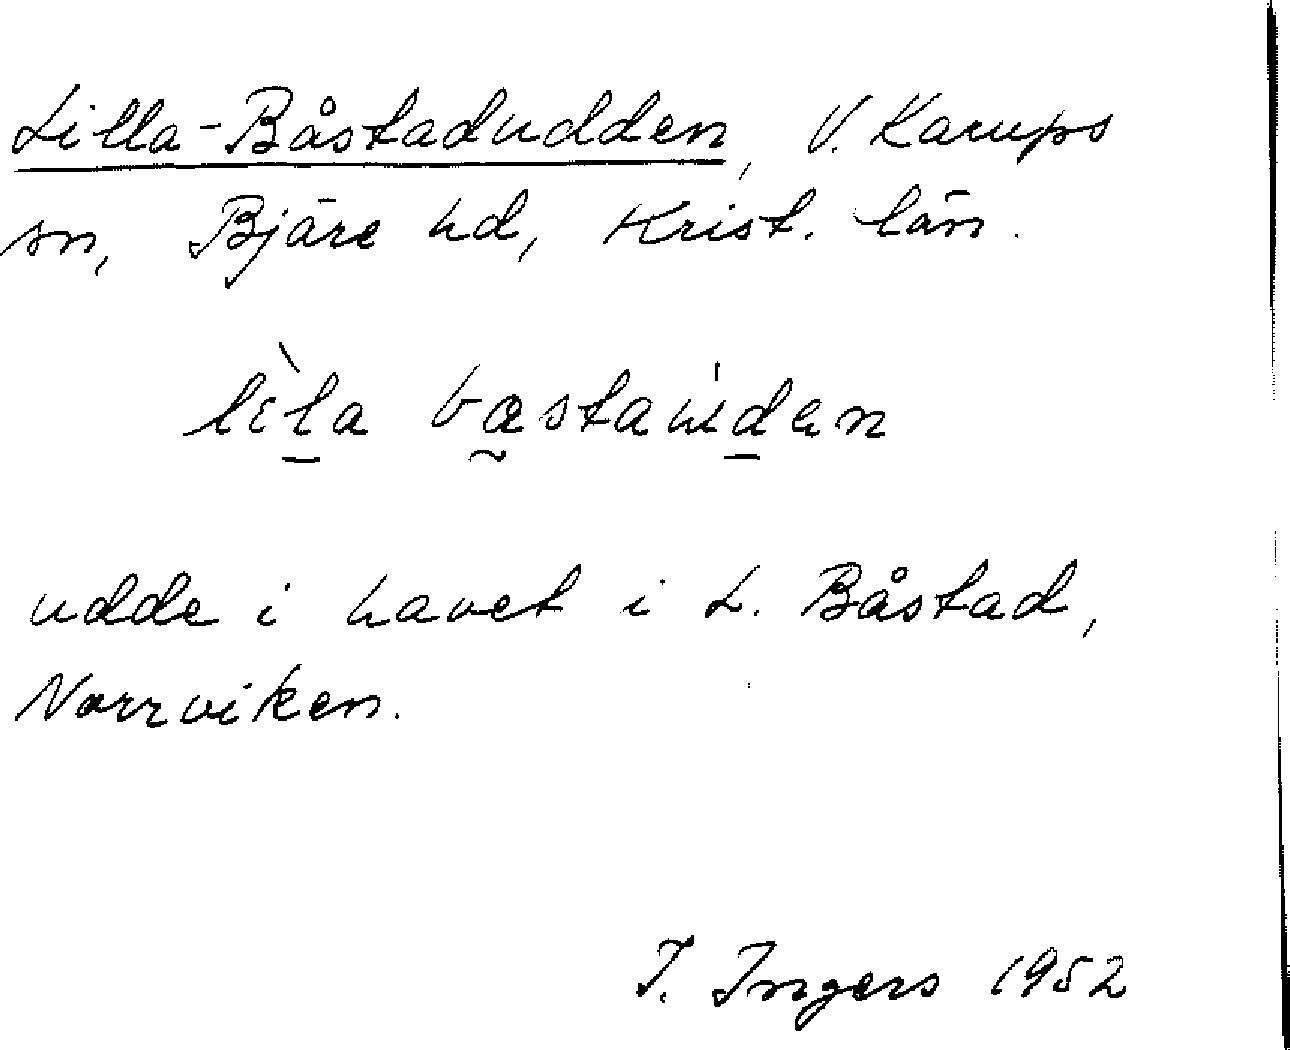 Lilla-Båstadudden, V. Karups
sn, Bjäre hd, Krist. län.
udde i havet i L. Båstad,
Norrviken.
I. Ingers 1952